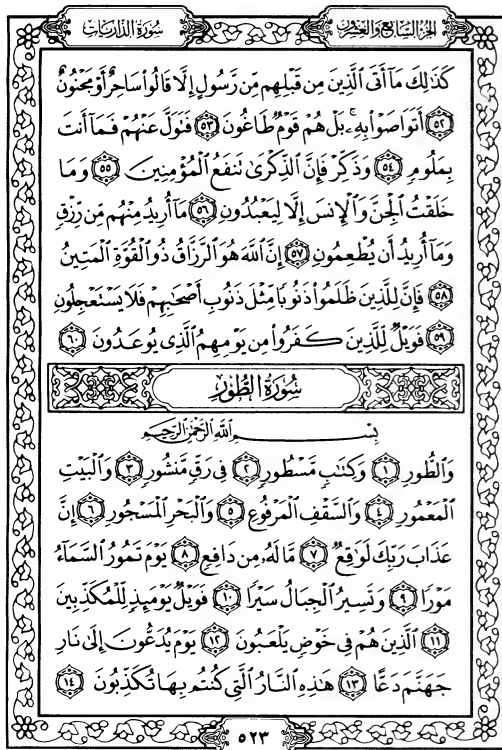 الجزء السابع والعشرون
سورة الذاريات
كَذَٰلِكَ مَآ أَتَى ٱلَّذِينَ مِن قَبْلِهِم مِّن رَّسُولٍ إِلَّا قَالُوا۟ سَاحِرٌ أَوْ مَجْنُونٌ
٥٢ أَتَوَاصَوْا۟ بِهِۦ ۚ بَلْ هُمْ قَوْمٌ طَاغُونَ ٥٣ فَتَوَلَّ عَنْهُمْ فَمَآ أَنتَ
بِمَلُومٍ ٥٤ وَذَكِّرْ فَإِنَّ ٱلذِّكْرَىٰ تَنفَعُ ٱلْمُؤْمِنِينَ ٥٥ وَمَا
خَلَقْتُ ٱلْجِنَّ وَٱلْإِنسَ إِلَّا لِيَعْبُدُونِ ٥٦ مَآ أُرِيدُ مِنْهُم مِّن رِّزْقٍ
وَمَآ أُرِيدُ أَن يُطْعِمُونِ ٥٧ إِنَّ ٱللَّهَ هُوَ ٱلرَّزَّاقُ ذُو ٱلْقُوَّةِ ٱلْمَتِينُ
٥٨ فَإِنَّ لِلَّذِينَ ظَلَمُوا۟ ذَنُوبًا مِّثْلَ ذَنُوبِ أَصْحَٰبِهِمْ فَلَا يَسْتَعْجِلُونِ
٥٩ فَوَيْلٌ لِّلَّذِينَ كَفَرُوا۟ مِن يَوْمِهِمُ ٱلَّذِى يُوعَدُونَ ٦٠
سورة الطور
بِسْمِ ٱللَّهِ ٱلرَّحْمَٰنِ ٱلرَّحِيمِ
وَٱلطُّورِ ١ وَكِتَٰبٍ مَّسْطُورٍ ٢ فِى رَقٍّ مَّنشُورٍ ٣ وَٱلْبَيْتِ
ٱلْمَعْمُورِ ٤ وَٱلسَّقْفِ ٱلْمَرْفُوعِ ٥ وَٱلْبَحْرِ ٱلْمَسْجُورِ ٦ إِنَّ
عَذَابَ رَبِّكَ لَوَٰقِعٌ ٧ مَّا لَهُۥ مِن دَافِعٍ ٨ يَوْمَ تَمُورُ ٱلسَّمَآءُ
مَوْرًا ٩ وَتَسِيرُ ٱلْجِبَالُ سَيْرًا ١٠ فَوَيْلٌ يَوْمَئِذٍ لِّلْمُكَذِّبِينَ
١١ ٱلَّذِينَ هُمْ فِى خَوْضٍ يَلْعَبُونَ ١٢ يَوْمَ يُدَعُّونَ إِلَىٰ نَارِ
جَهَنَّمَ دَعًّا ١٣ هَٰذِهِ ٱلنَّارُ ٱلَّتِى كُنتُم بِهَا تُكَذِّبُونَ ١٤
٥٢٣